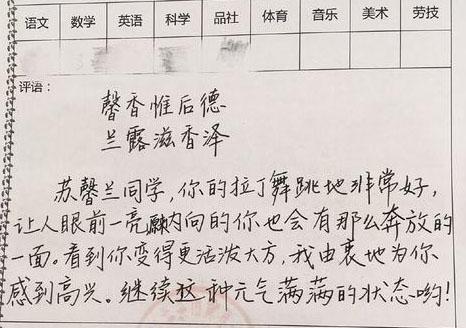 语文 数学 英语 科学 品社 体育 音乐 美术 劳技
评语:
馨香惟后德
兰露滋香泽
苏馨兰同学,你的拉丁舞跳地非常好,
让人眼前一亮,内向的你也会有那么奔放的
一面。看到你变得更活泼大方,我由衷地为你
感到高兴。继续这种元气满满的状态哟!